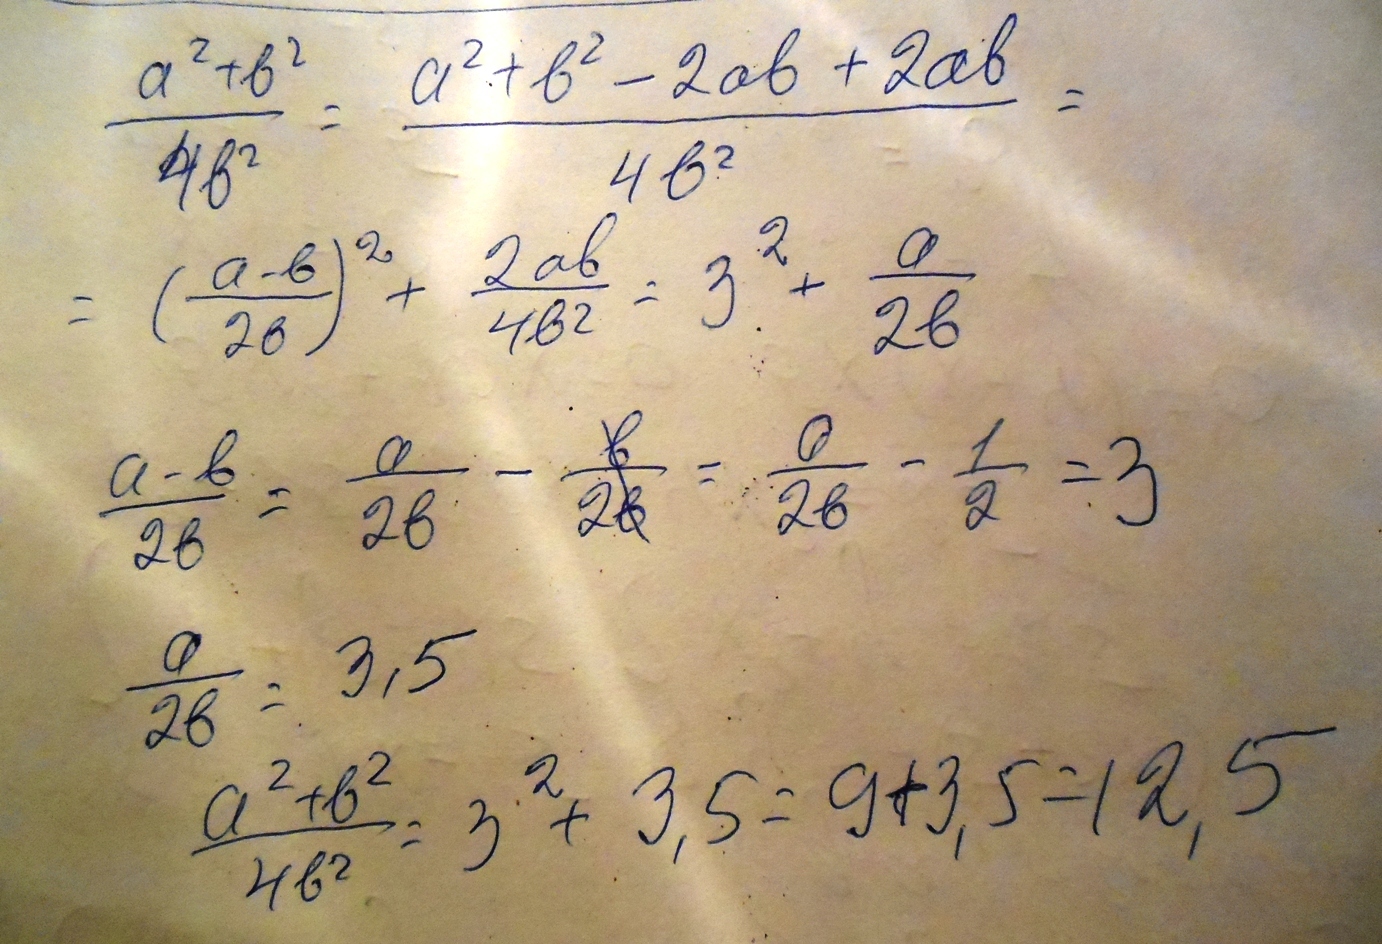 (a²+b²)/(4b²) = (a²+b²-2ab+2ab)/(4b²) =
= ((a-b)/(2b))² + (2ab)/(4b²) = 3² + a/(2b)
(a-b)/(2b) = a/(2b) - b/(2b) = a/(2b) - 1/2 = 3
a/(2b) = 3,5
(a²+b²)/(4b²) = 3² + 3,5 = 9+3,5 = 12,5